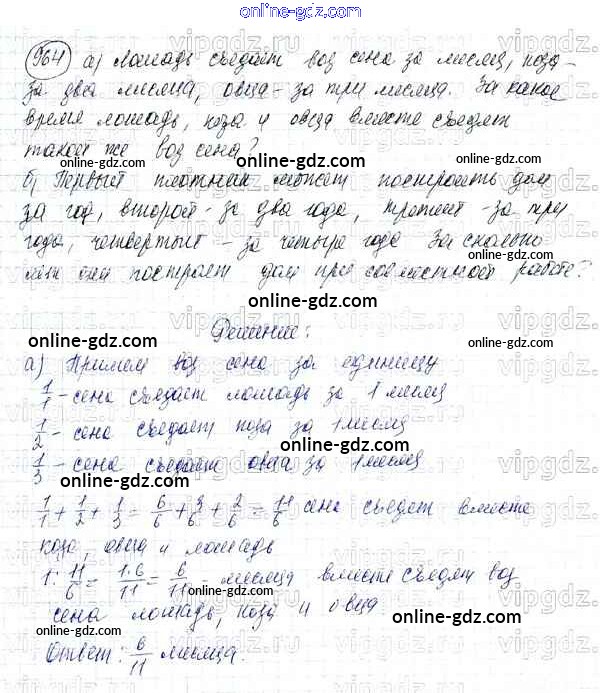 online-gdz.com
964 а) Лошадь съедает воз сена за месяц, коза -
за два месяца, овца - за три месяца. За какое
время лошадь, коза и овца вместе съедят
такой же воз сена?
online-gdz.com
б) Первый плотник может построить дом
за год, второй - за два года, третий - за три
года, четвертый - за четыре года За сколько
лет они построят дом при совместной работе?
online-gdz.com
Решение:
online-gdz.com
а) Примем воз сена за единицу
online-gdz.com
1/1 - сена съедает лошадь за 1 месяц
1/2 - сена съедает коза за 1 месяц
online-gdz.com
1/3 - сена съедает овца за 1 месяц
online-gdz.com
1/1 + 1/2 + 1/3 = 6/6 + 3/6 + 2/6 = 11/6 сена съедят вместе
коза, овца и лошадь
online-gdz.com
1 : 11/6 = 1·6/11 = 6/11 - месяца вместе съедят воз
online-gdz.com
сена лошадь, коза и овца
online-gdz.com
Ответ: 6/11 месяца.
online-gdz.com